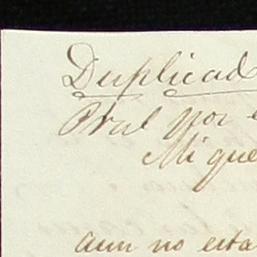 Duplicad
Pral por e
Migue
aun no esta